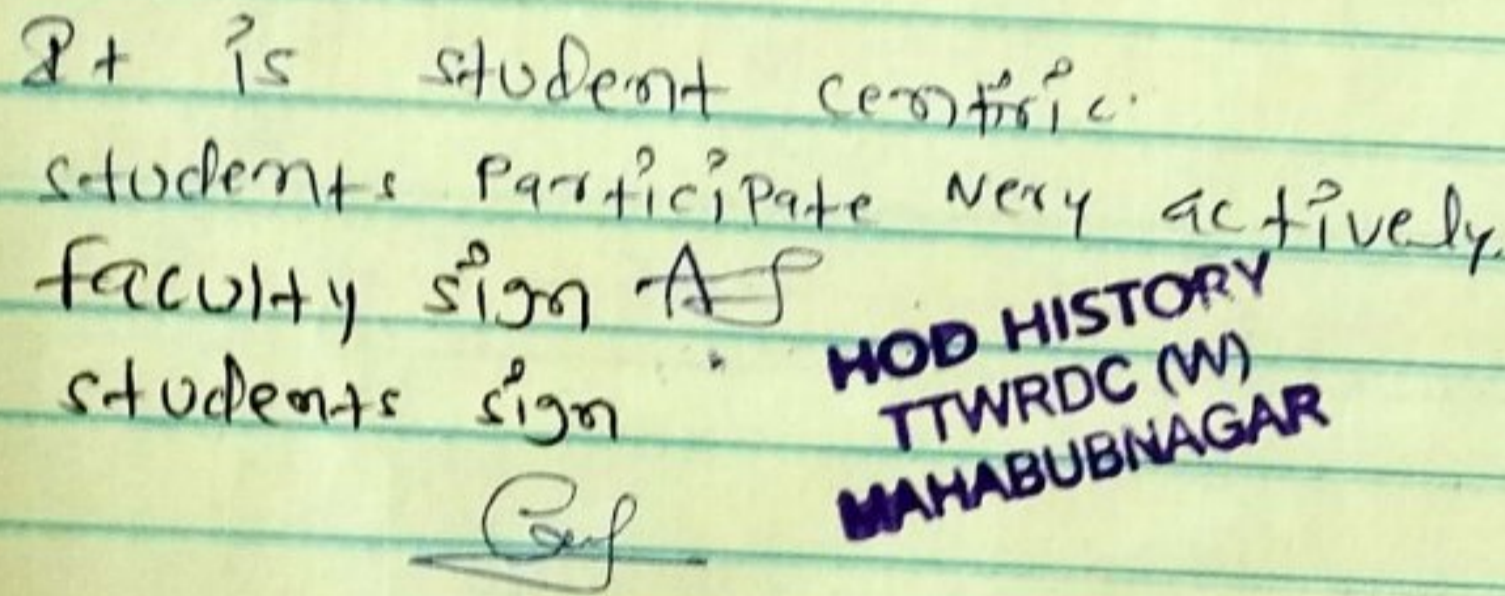 It is student centric.
students Participate very actively.
faculty sign
students sign
HOD HISTORY
TTWRDC (W)
MAHABUBNAGAR